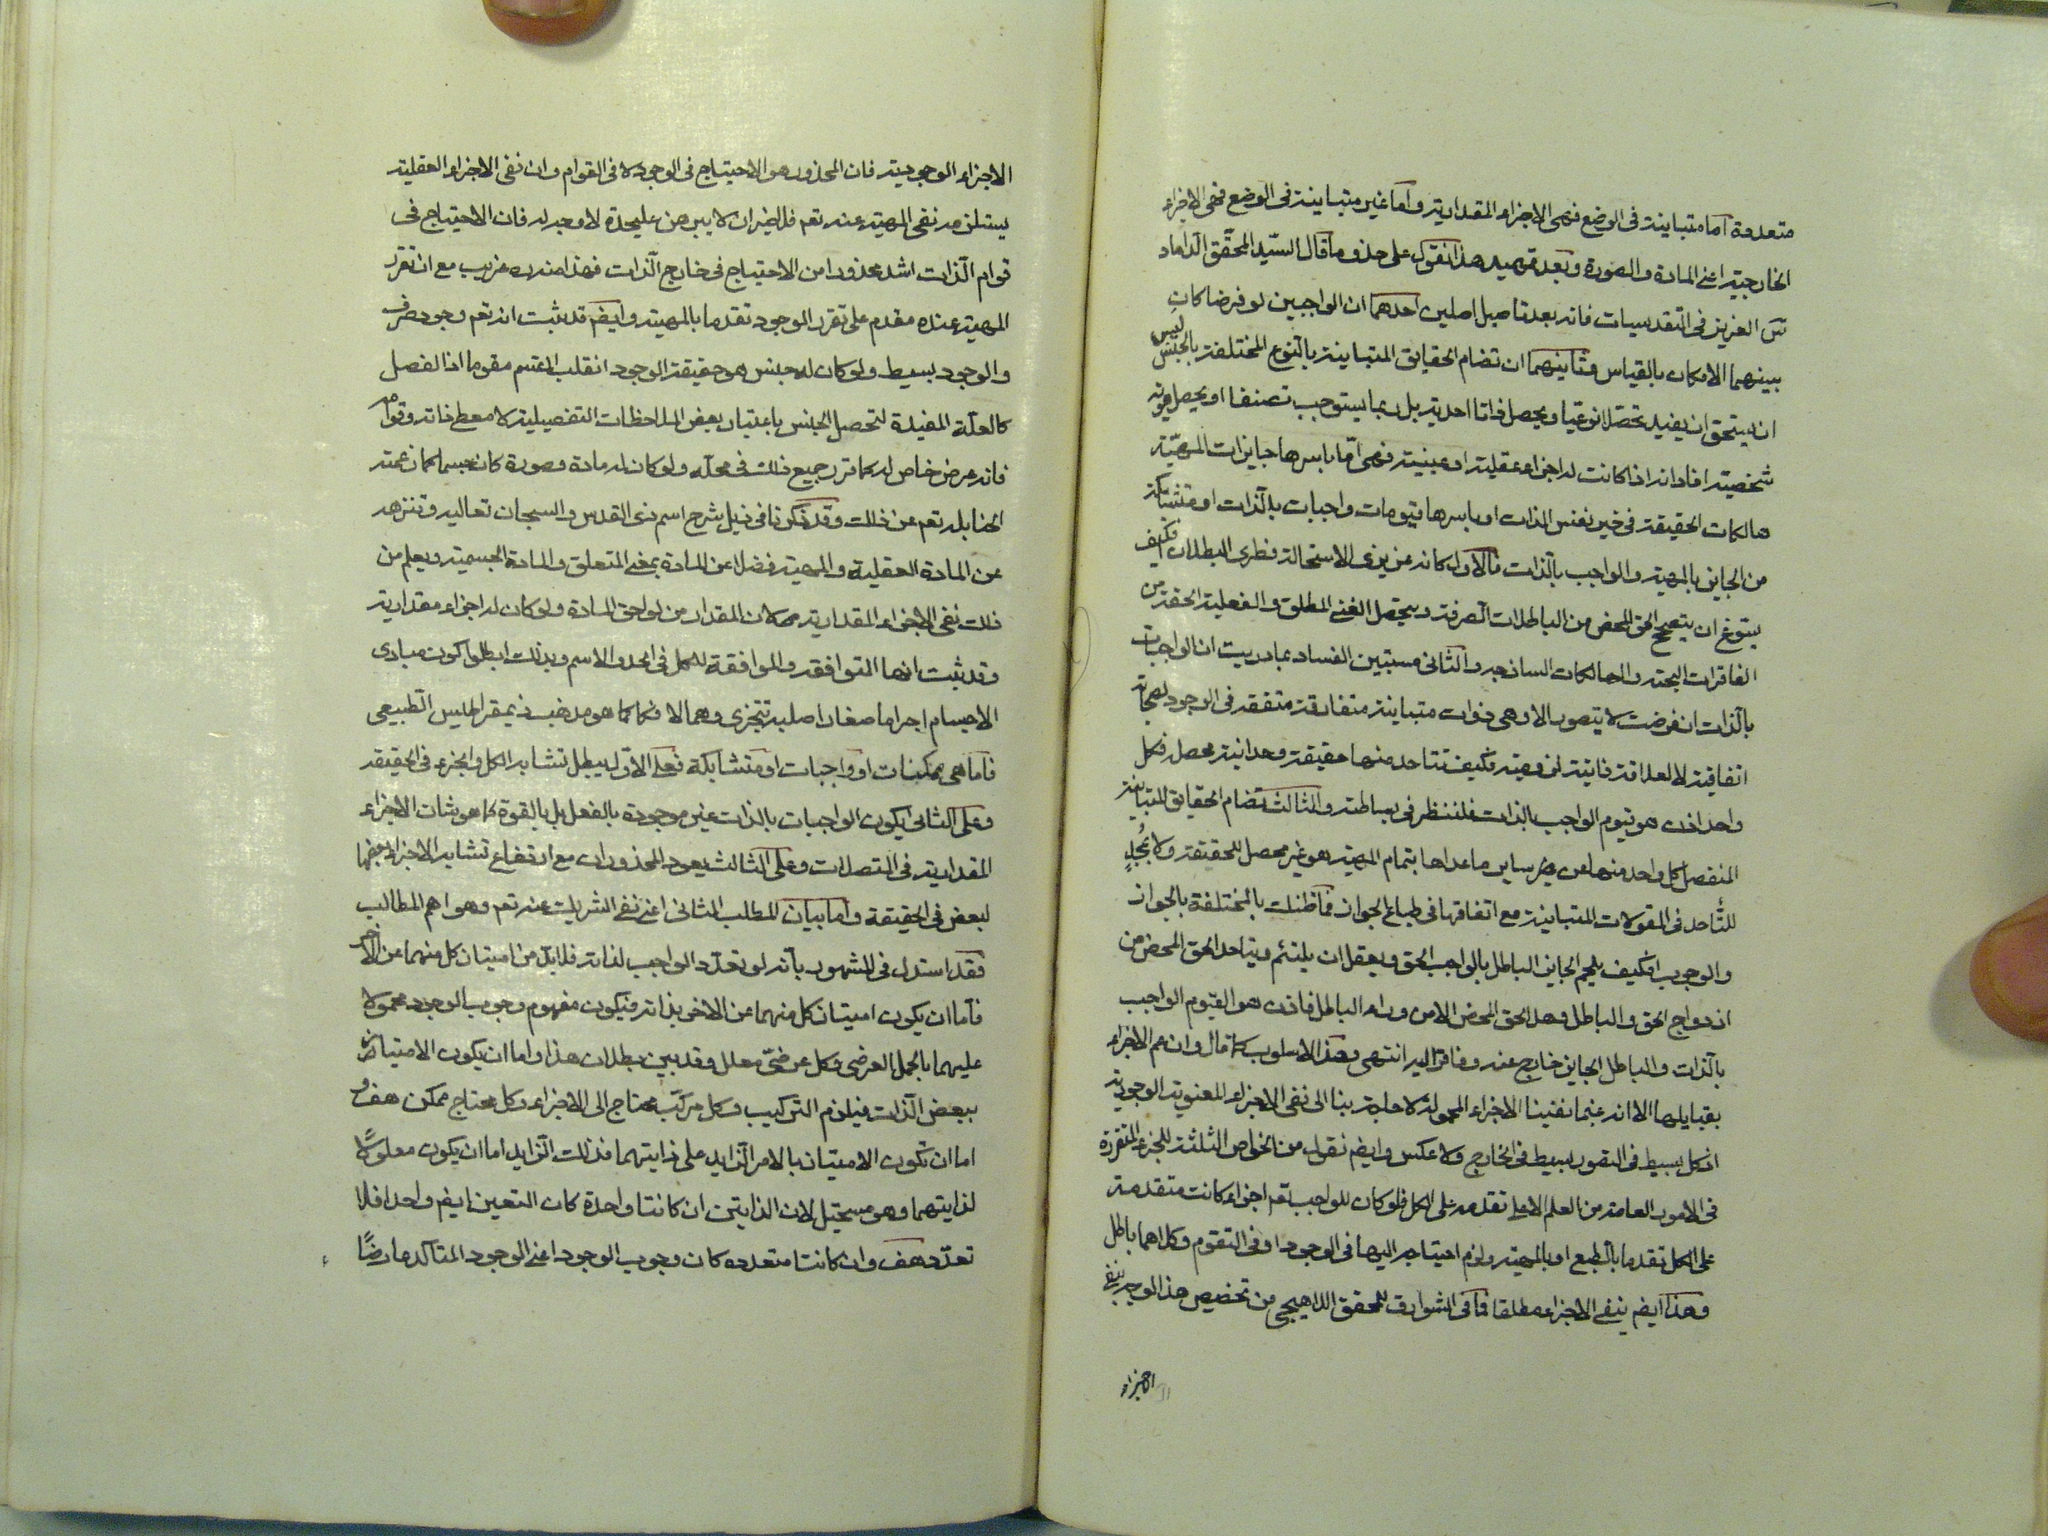 متعددة اما متباينة فى الوضع فهى الاجزاء المقدارية واما غير متباينة فى الوضع فهى الاجزاء
الخارجية اعنى المادة والصورة وبعد تمهيد هذا نقول على حذو ما قال السيد المحقق الداماد
س العزيز فى التقديسات فانه بعد تاصيل اصلين احدهما ان الواجبين لو فرضا كان ليس
بينهما الامكان بالقياس وثانيهما ان تضام الحقايق المتباينة بالنوع المختلفة بالجنس
ان يستحق ان يفيد تحصلا نوعيا ويحصل ذاتا احدية بل ربما يستوجب تصنفا او يحصل هوية
شخصية افاد انه اذا كانت له اجزاء عقلية او عينية فهى اما باسرها جايزات المهية
هالكات الحقيقة فى حيز نفس الذات او باسرها قيومات واجبات بالذات او متشابكة
من الجايز بالمهية والواجب بالذات فالاول كانه غريزى الاستحالة فطرى البطلان فكيف
يستوغ ان يتصحح الحق المحض من الباطلات الصرفة ويتحصل الغنى المطلق والفعلية الحقة من
الفاقرات البحتة والهالكات الساذجة والثانى مستبين الفساد بما دريت ان الواجبات
بالذات ان فرضت لا يتصور الا وهى ذوات متباينة متفارقة متفقة فى الوجود لصحابة
اتفاقية لا لعلاقة ذاتية لزومية فكيف تتاحد منها حقيقة وحدانية محصل فكل
واحد اذن هو قيوم الواجب بالذات فلننظر فى بساطته والثالث تضام الحقايق المتباينة
المنفصل كل واحد منها عن سائر ما عداها بتمام المهية هو غير محصل للحقيقة ولا مجد
للتاحد فى المقولات المتباينة مع اتفاقها فى طباع الجواز فما ظنك بالمختلفة بالجواز
والوجوب افكيف يلحم الجايز الباطل بالواجب الحق ويعقل ان يلتئم ويتاحد الحق المحض من
ازدواج الحق والباطل وهل الحق المحض الا من وراء الباطل فاذن هو القيوم الواجب
بالذات والباطل الجايز خارج عنه وفاقر اليه انتهى وهذا الاسلوب كما قال وان عم الاجزاء
بقبايلها الا انه عندما نفينا الاجزاء المحمولة لا حاجة بنا الى نفى الاجزاء المعنوية الوجودية
اذ كل بسيط فى التصور بسيط فى الخارج ولا عكس وايضا نقول من الخواص الثلثة للجزء المتقررة
فى الامور العامة من العلم الاعلى تقدمه على الكل فلو كان للواجب تعم اجزاء كانت متقدمة
على الكل تقدما بالطبع او بالمهية ولزم احتياجه اليها فى الوجود او فى التقوم وكلاهما باطل
وهذا ايضم ينفى الاجزاء مطلقا فما فى الشوارق للمحقق اللاهيجى من تخصيص هذا الوجه بنفى
الاجزاء
الاجزاء الوجودية فان المحذور هو الاحتياج فى الوجود لا فى القوام وان نفى الاجزاء العقلية
يستلزمه نفى المهية عنه تعم فلا ضير ان لا يبرهن عليحدة لا وجه له فان الاحتياج فى
قوام الذات اشد محذورا من الاحتياج فى خارج الذات فهذا منه غريب مع ان تقرر
المهية عنده مقدم على تقرر الوجود تقدما بالمهية وايضم قد ثبت انه تعم وجود صرف
والوجود بسيط ولو كان له جنس هو حقيقة الوجود انقلب المقسم مقوما اذ الفصل
كالعلة المفيدة لتحصل الجنس باعتبار بعض الملاحظات التفصيلية لا معط ذاته وقوامه
فانه عرض خاص له كما قرر جميع ذلك فى محله ولو كان له مادة وصورة كان جسما كما زعمته
الحنابلة تعم عن ذلك وقد ذكرنا فى ذيل شرح اسم ذى القدس والسبحان تعاليه وتنزهه
عن المادة العقلية والمهية فضلا عن المادة بمعنى المتعلق والمادة الجسمية ويعلم من
ذلك نفى الاجزاء المقدارية لان المقدار من لواحق المادة ولو كان له اجزاء مقدارية
وقد ثبت انها المتوافقة والموافقة للكل فى الحد والاسم وبذلك ابطلوا كون مبادى
الاجسام اجراما صغارا صلبة تتجزى وهما لا فكا كما هو مذهب ذيمقراطيس الطبيعى
فاما هى ممكنات او واجبات او متشابكة فعلى الاول يبطل تشابه الكل والجزء فى الحقيقة
وعلى الثانى يكون الواجبات بالذات غير موجودة بالفعل بل بالقوة كما هو شان الاجزاء
المقدارية فى المتصلات وعلى الثالث يعود المحذوران مع ارتفاع تشابه الاجزاء بعضها
لبعض فى الحقيقة واما بيان المطلب الثانى اعنى نفى الشريك عنه تعم وهو اهم المطالب
فقد استدل فى المشهور بانه لو تعدد الواجب لذاته فلا بد من امتياز كل منهما عن الاخر
فاما ان يكون امتياز كل منهما عن الاخر بذاته فيكون مفهوم وجوب الوجود محمولا
عليهما بالحمل العرضى وكل عرضى معلل وقد بين بطلان هذا واما ان يكون الامتياز
ببعض الذات فيلزم التركيب وكل مركب محتاج الى الاجزاء وكل محتاج ممكن هف و
اما ان يكون الامتياز بالامر الزايد على ذايتهما فذلك الزايد اما ان يكون معلولا
لذايتهما وهو مستحيل لان الذايتين ان كانتا واحدة كان التعين ايضم واحدا فلا
تعدد هف وان كانتا متعددة كان وجوب الوجود اعنى الوجود المتاكد عارضا